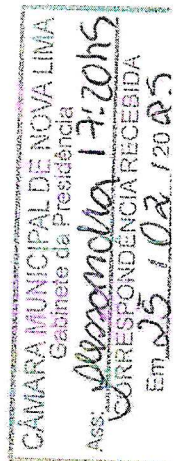 CÂMARA MUNICIPAL DE NOVA LIMA
Gabinete da Presidência
Ass: 17:20hs
CORRESPONDÊNCIA RECEBIDA
Em 25 / 02 / 20 25